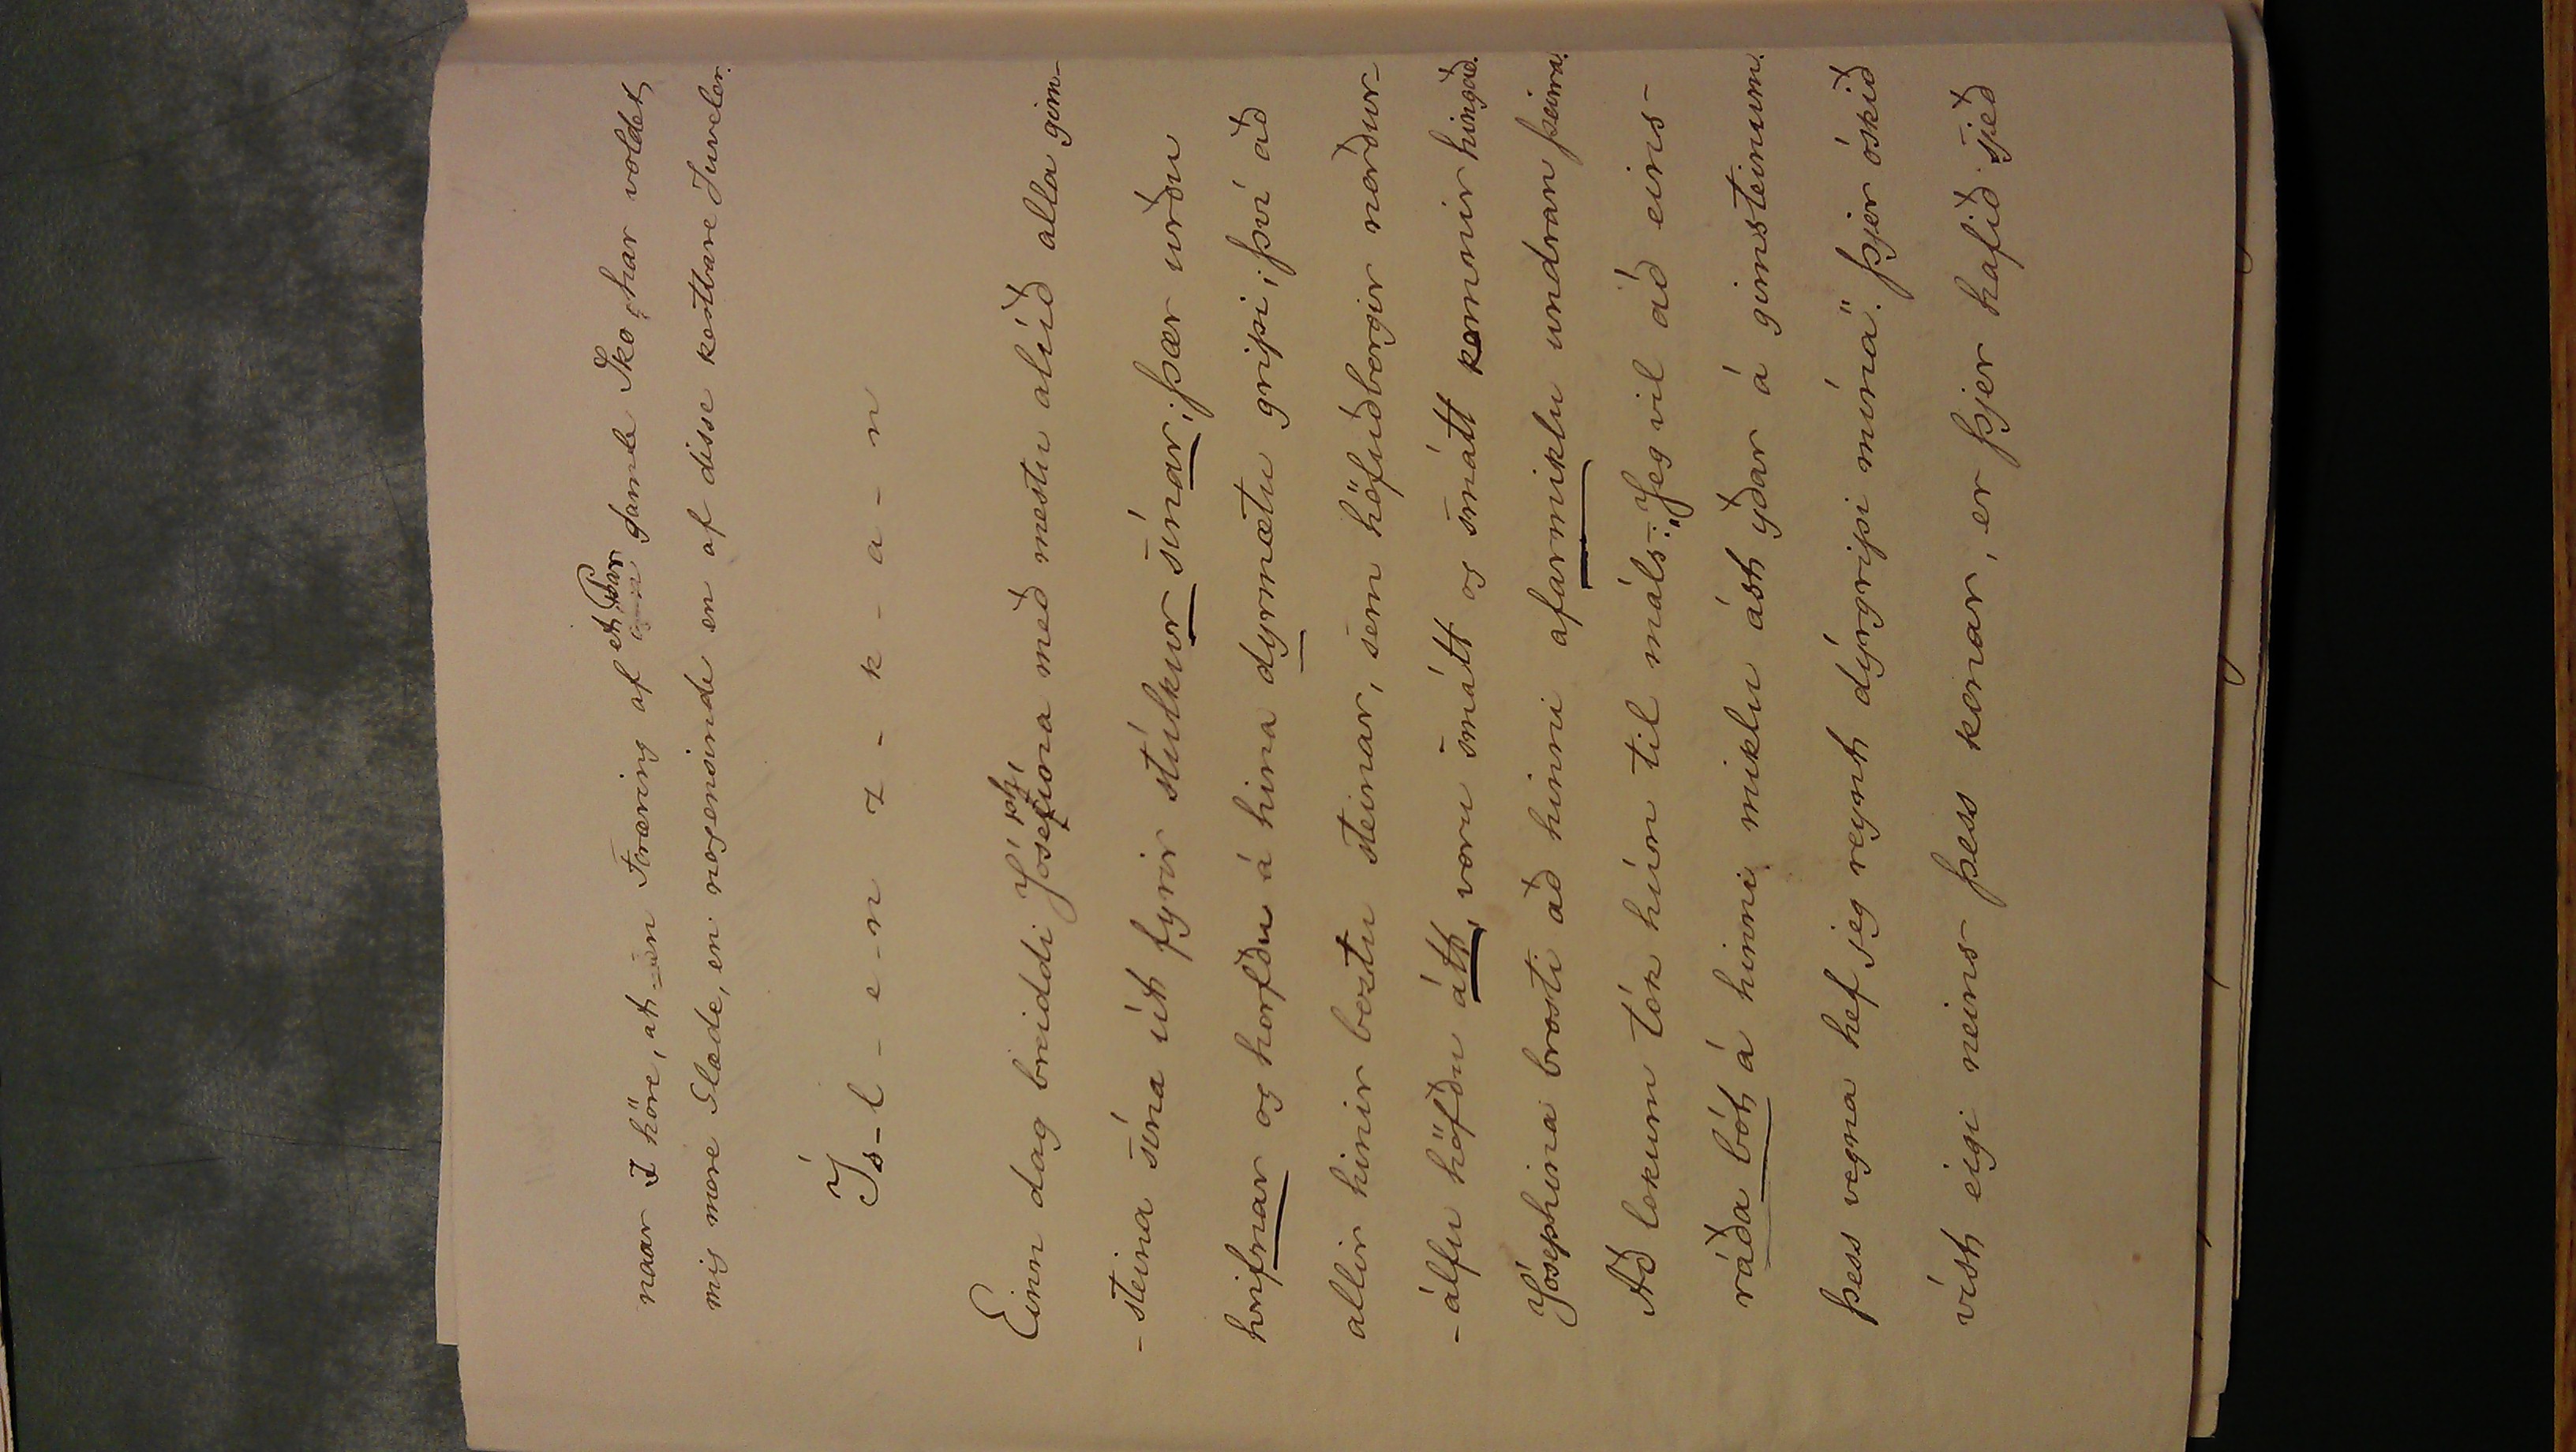 naar I höre, at en Foræring af et Par gamle Sko, har voldet
mig more Glæde, en nogensinde en af disse kostbare Juveler.
Ís-l-e-n-z-k-a-n
Einn dag breiddi Jósephína með mestu alúð alla gim-
-steina sína út fyrir stúlkur sínar; þær urðu
hrifnar og horfðu á hina dyrmætu gripi; því að
allir hinir beztu steinar, sem höfuðborgir norður-
-álfu höfðu átt, voru smátt og smátt komnir hingað.
Jósephina brosti að hinni afarmiklu undran þeirra.
Að lokum tók hún til máls: „Jeg vil að eins-
ráða bót á hinni miklu ást yðar á gimsteinum.
þess vegna hef jeg reynt dýrgripi mína". Þjer óskið
víst eigi neins þess konar, er þjer hafið sjeð